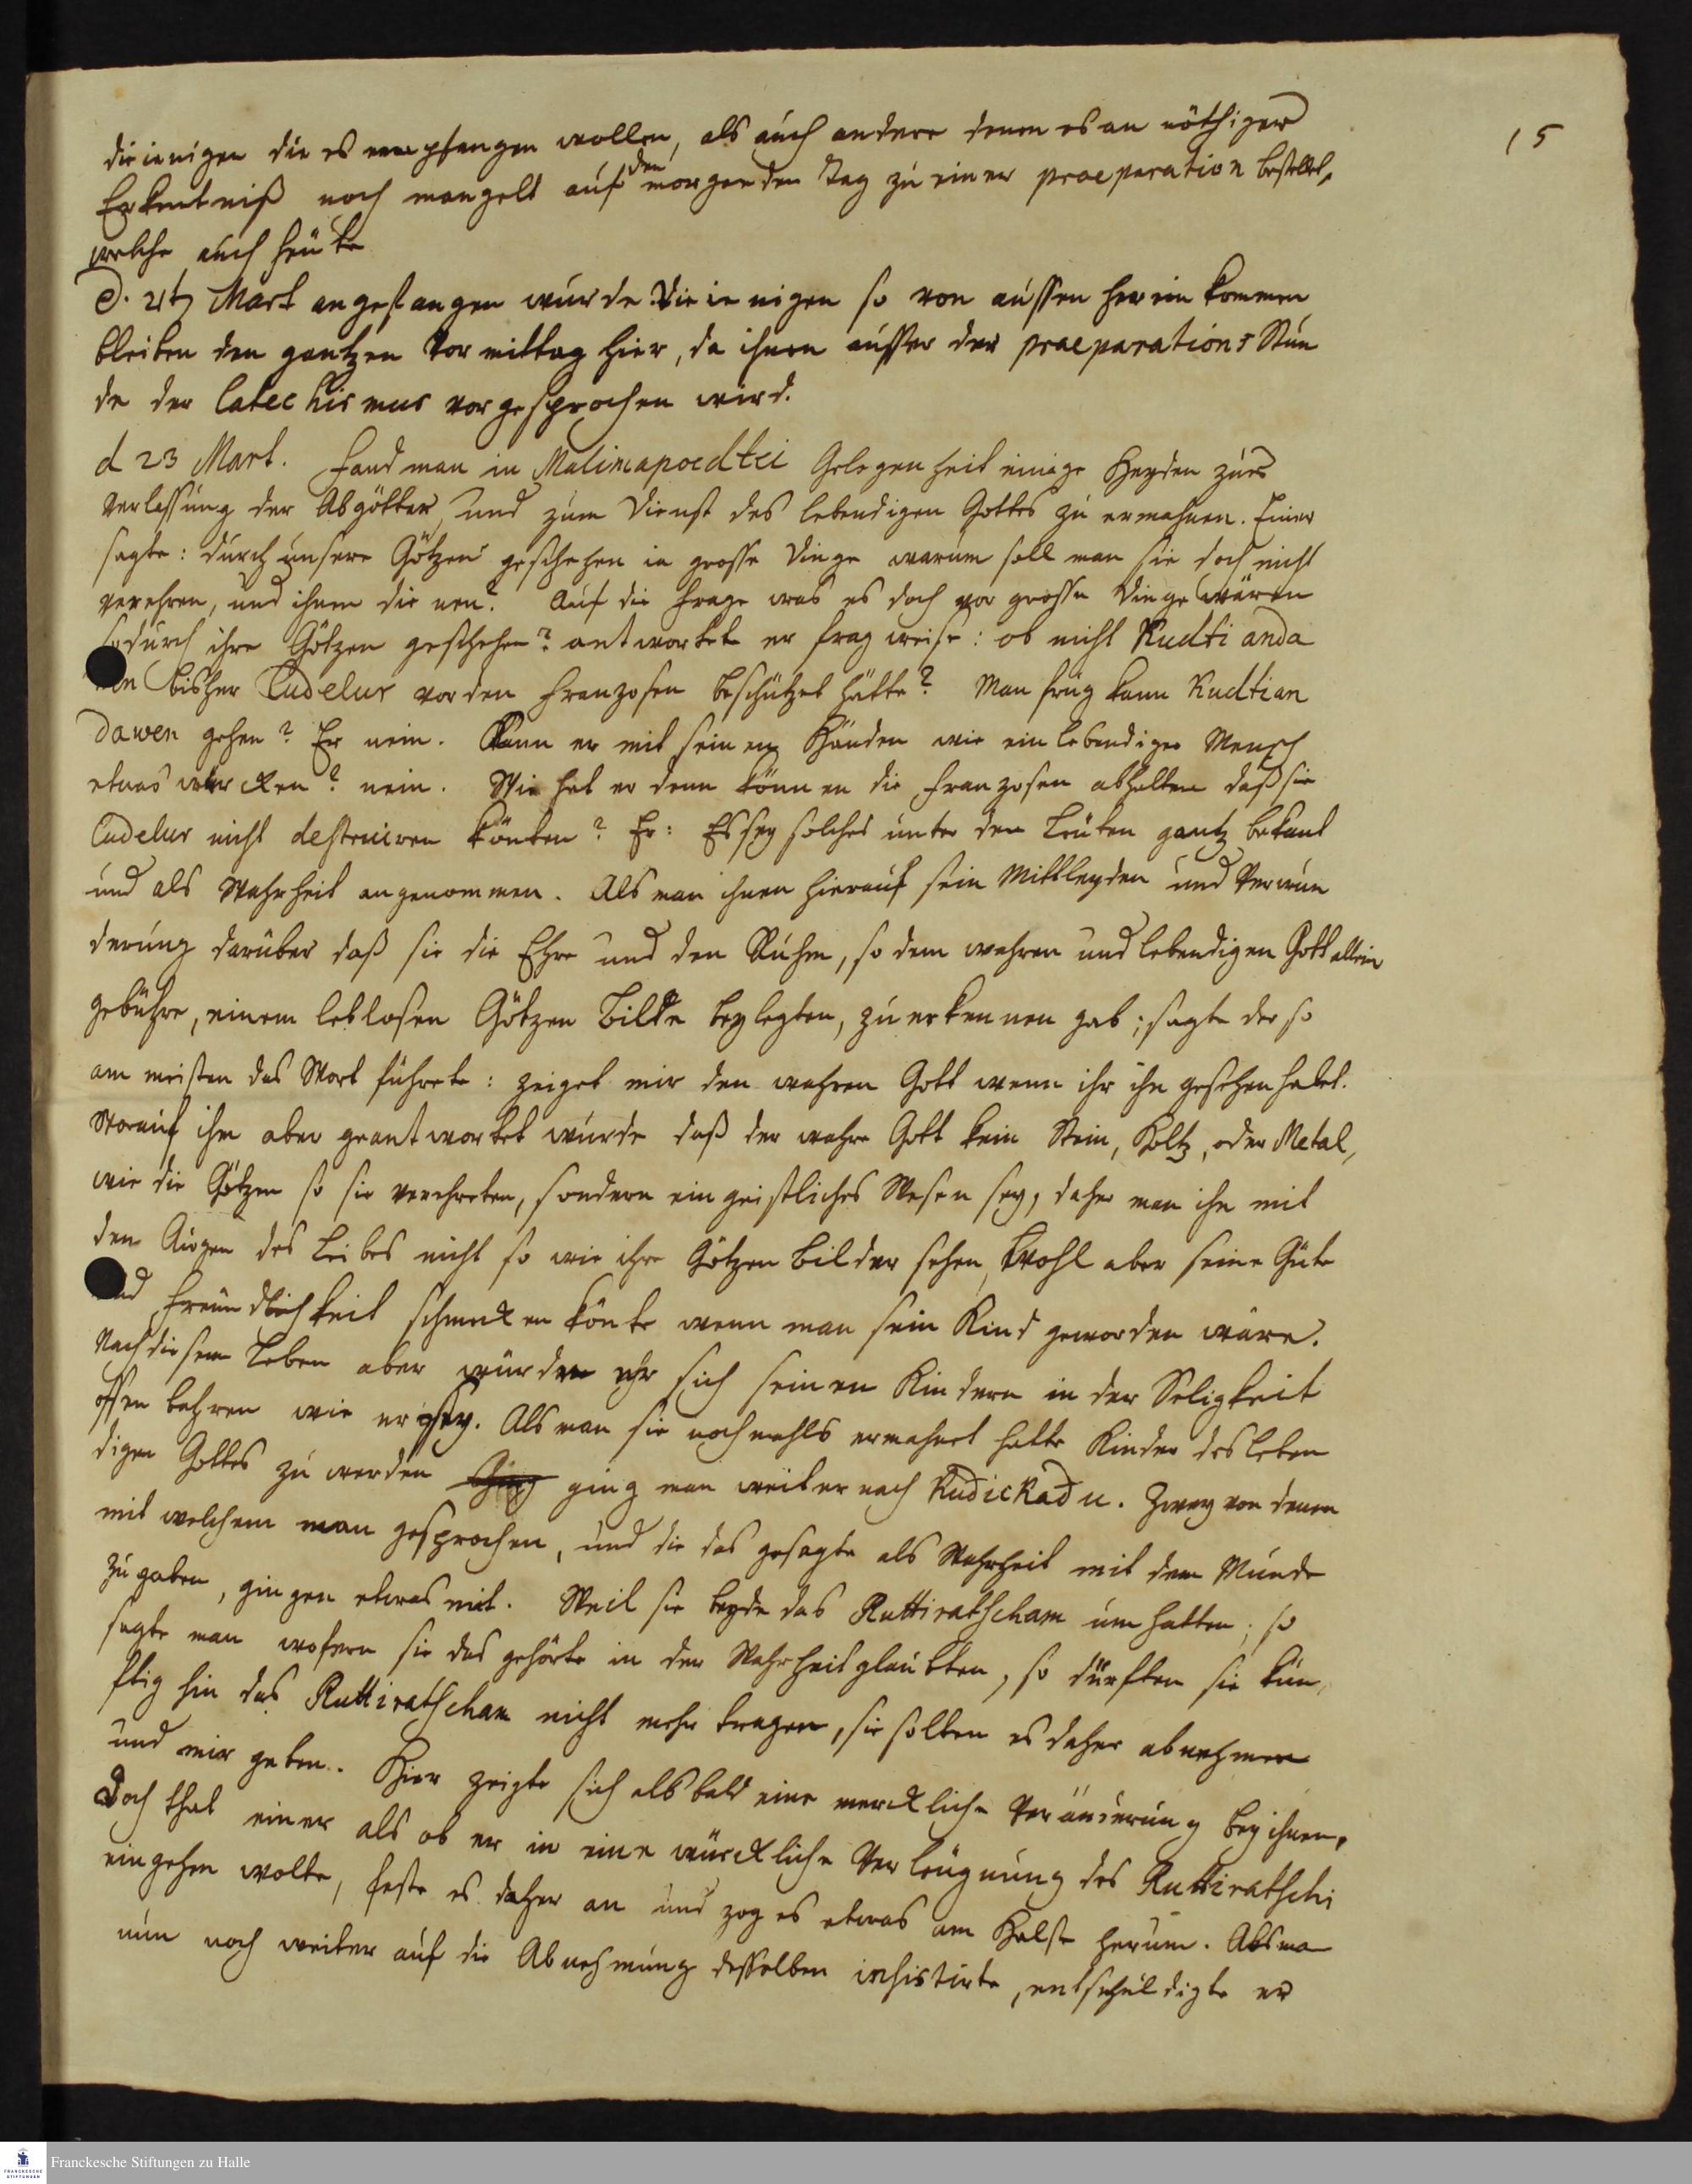 15
dieienigen die es empfangen wollen, als auch andere denen es an nöthiger
Erkentniß noch mangelt auf den morgenden Tag zu einer praeparation bestellet,
welche auch heute
d. 21t Mart angefangen wurde. Dieienigen so von aussen herein kommen
bleiben den gantzen Vormittag hier, da ihnen ausser der praeparations Stun
de der Catechismus vorgesprochen wird.
d 23 Mart. Fand man in Malimapoedtei Gelegenheit einige Heyden zur
Verlassung der Abgötter, und zum Dienst des lebendigen Gottes zu ermahnen. Einer
sagte: durch unsere Götzen geschehen ia grosse Dinge warum soll man sie doch nicht
verehren, und ihnen dienen? Auf die Frage was es doch vor grosse Dinge wären
so durch ihre Götzen geschehen? antwortete er frag weise: ob nicht Kudtianda
wen bisher Cudelur vor den Franzosen beschützet hätte? Man frug kann Kudtian
dawen gehen? Er nein. Kann er mit seinen Händen wie ein lebendiger Mensch
etwas wircken? nein. Wie hat er denn können die Franzosen abhalten daß sie
Cudelur nicht destruiren könten? Er: Es sey solches unter den Leuten gantz bekant
und als Wahrheit angenommen. Als man ihnen hierauf sein Mittleyden und Verwun
derung darüber daß sie die Ehre und den Ruhm, so dem wahren und lebendigen Gott allein
gebühre, einem leblosen Götzen Bilde beylegten, zu erkennen gab; sagte der so
am meisten das Wort führete: zeiget mir den wahren Gott wenn ihr ihn gesehen habet.
Worauf ihm aber geantwortet wurde daß der wahre Gott kein Stein, Holtz, oder Metal,
wie die Götzen so sie verehreten, sondern ein geistliches Wesen sey, daher man ihn mit
den Augen des Leibes nicht so wie ihre Götzen Bilder sehen, wohl aber seine Güte
und Freundlichkeit schmecken könte wenn man sein Kind geworden wäre.
Nach diesem Leben aber würde er sich seinen Kindern in der Seligkeit
offenbahren wie er sey. Als man sie nochmahls ermahnet hatte Kinder des leben
digen Gottes zu werden ging man weiter nach Kudickadu. Zwey von denen
mit welchem man gesprochen, und die das gesagte als Wahrheit mit dem Munde
zugaben, gingen etwas mit. Weil sie beyde das Ruttiratscham um hatten; so
sagte man wofern sie das gehörte in der Wahrheit glaubten, so dürften sie kün,
ftig hin das Ruttiratscham nicht mehr tragen, sie solten es daher abnehmen
und mir geben. Hier zeigte sich alsbald eine merckliche Veränderung bey ihnen,
Doch that einer als ob er in eine würckliche Verleugnung des Ruttiratschi
eingehen wolte, faste es daher an und zog es etwas am Halse herum. Als man
nun noch weiter auf die Abnehmung desselben insistirte, entschuldigte er
Franckesche Stiftungen zu Halle